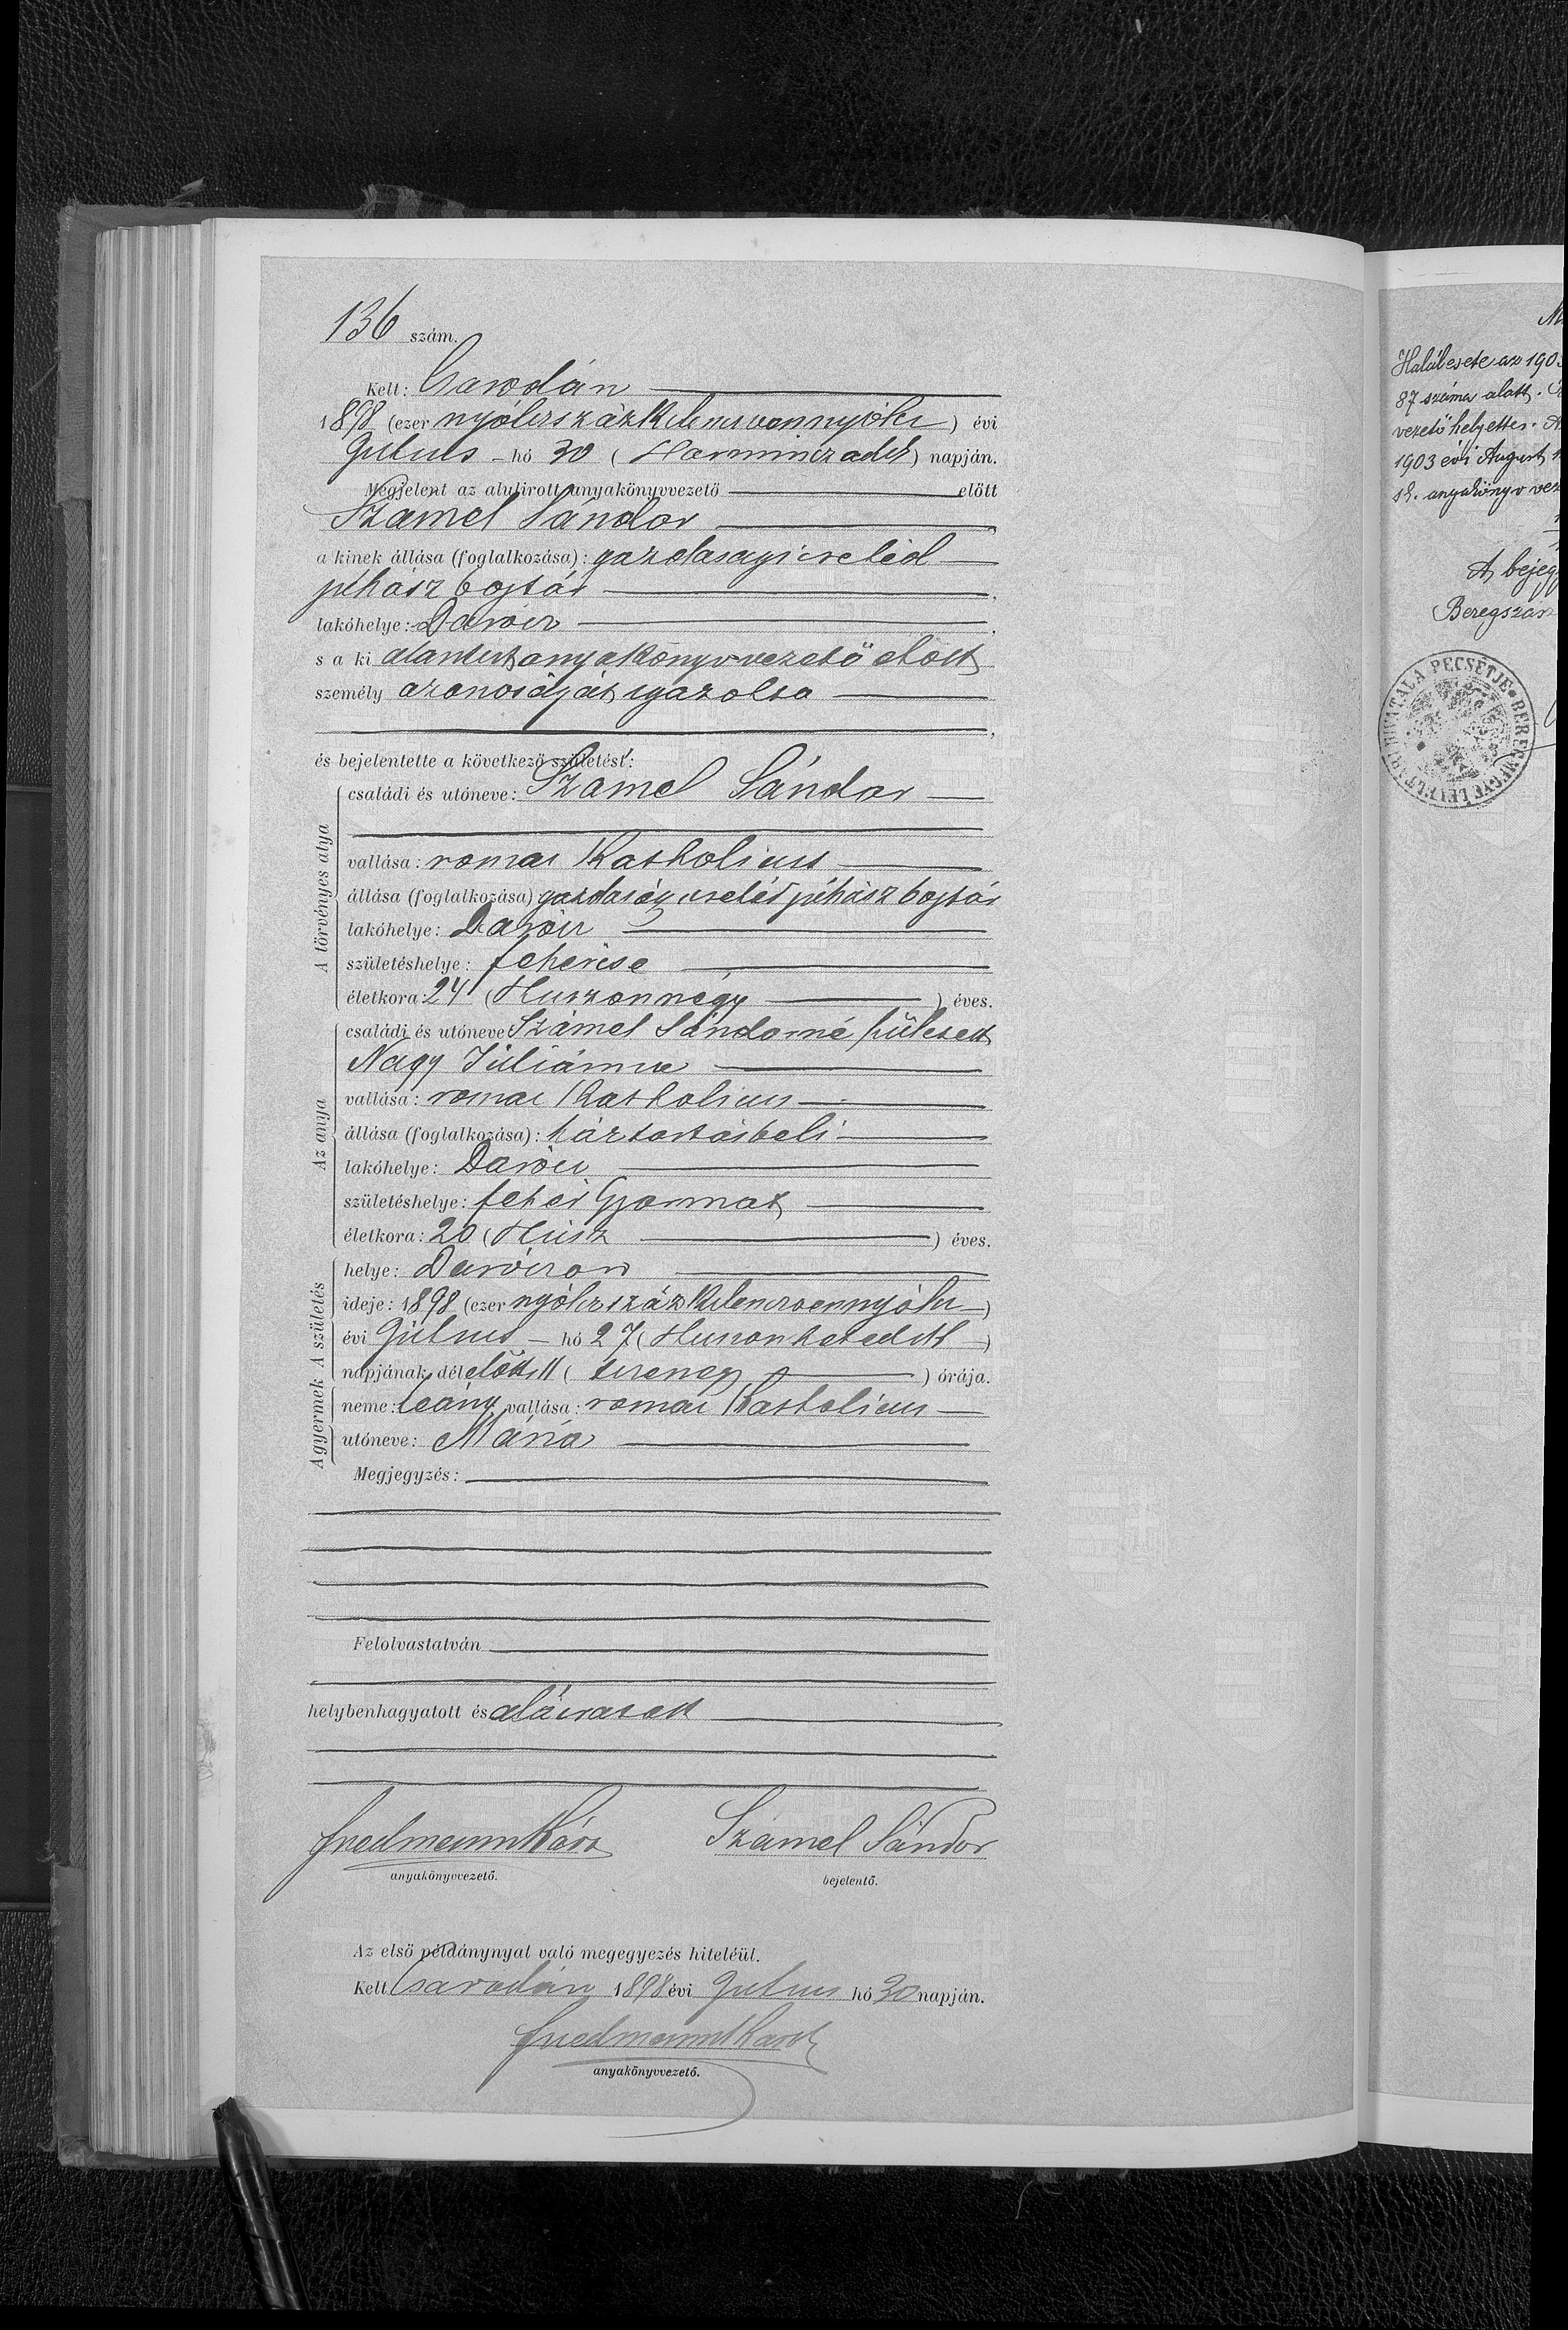 136 szám.
Kelt: Csarodán
1898 (ezer nyolczszázkilenczvennyolcz) évi
Julius - hó 30 (Harminczadik) napján.
Megjelent az alulirott anyakönyvvezető előtt
Szamel Sándor
a kinek állása (foglalkozása): gazdasagi cseléd
juhász bojtár
lakóhelye: Darócz
s a ki alantirt anyakönyvvezető előtt
személy azonosságát igazolta
és bejelentette a következő születést:
A törvényes atya
családi és utóneve: Szamel Sándor
vallása: romai Katholicus
állása (foglalkozása) gazdaság cseléd juhász bojtár
lakóhelye: Darócz
születéshelye: fehércse
életkora: 24 (Huszonnégy) éves.
Az anya
családi és utóneve Számel Sándorné született
Nagy Juliánna
vallása: romai Katholicus
állása (foglalkozása): háztartásbeli
lakóhelye: Darócz
születéshelye: fehér Gyarmat
életkora: 20 (Húsz) éves.
A születés
helye: Daróczon
ideje: 1898 (ezer nyolczszázkilenczvennyolcz)
évi Julius - hó 27 (Huszonhetedik)
napjának délelőtt 11 (tizenegy) órája.
A gyermek
neme: leány, vallása: romai Katholicus
utóneve: Mária
Megjegyzés:
Felolvastatván
helybenhagyatott és aláiratott
Szamel Sándor
anyakönyvvezető. bejelentő.
Az első példánynyal való megegyezés hiteléül.
Kelt Csarodán 1898 évi Julius hó 30 napján.
anyakönyvvezető.
Halálesete az 190
87 száma alatt.
vezető helyettes.
1903 évi August
sk. anyakönyv vez
A bejegy
Beregszás
BEREGMEGYE LEVÉLTÁRI HIVATALA PECSÉTJE